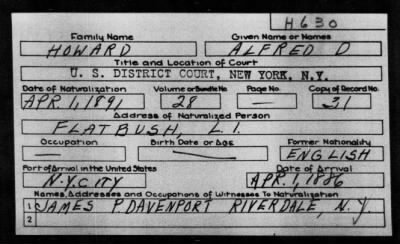 H630
Family Name Given Name or Names
HOWARD ALFRED D
Title and Location of Court
U. S. DISTRICT COURT, NEW YORK, N.Y.
Date of Naturalization Volume or Bundle No. Page No. Copy of Record No.
APR 1, 1891 28 — 31
Address of Naturalized Person
FLATBUSH, L.I.
Occupation Birth Date or Age Former Nationality
— — ENGLISH
Port of Arrival in the United States Date of Arrival
N.Y. CITY APR. 1, 1886
Names, Addresses and Occupations of Witnesses To Naturalization
1 JAMES P. DAVENPORT RIVERDALE, N.Y.
2